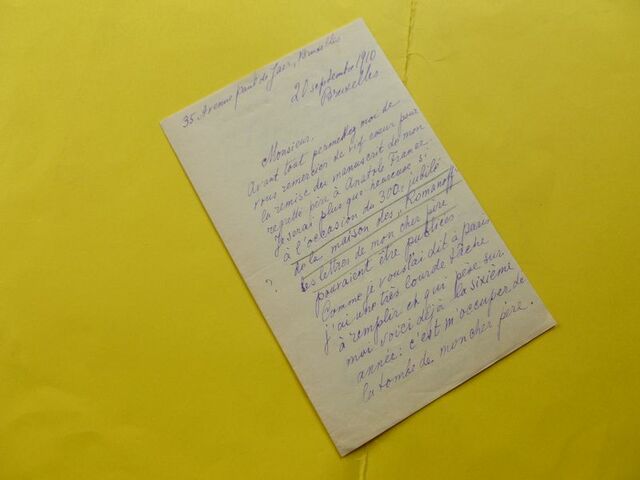 35 Avenue Paul de Jaer, Bruxelles
20 septembre 1910
Bruxelles
Monsieur.
Avant tout permettez moi de
vous remercier de vif cœur pour
la remise du manuscrit de mon
regretté père à Anatole France.
Je serai plus que heureuse si
à l'occasion du 300e jubilé
de la maison des Romanoff
les lettres de mon cher père
?
pouvaient être publiées
Comme je vous l'ai dit à Paris
j'ai une très lourde tâche
à remplir et qui pèse sur
moi voici déjà la sixième
année: c'est m'occuper de
la tombe de mon cher père.